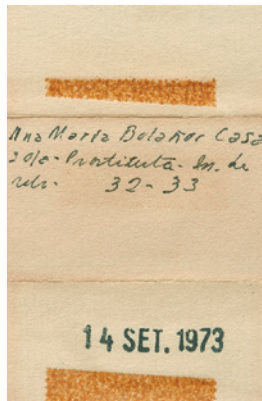 Ana Maria Bolaños Casa
Prostituta. En. de
32-33
14 SET. 1973